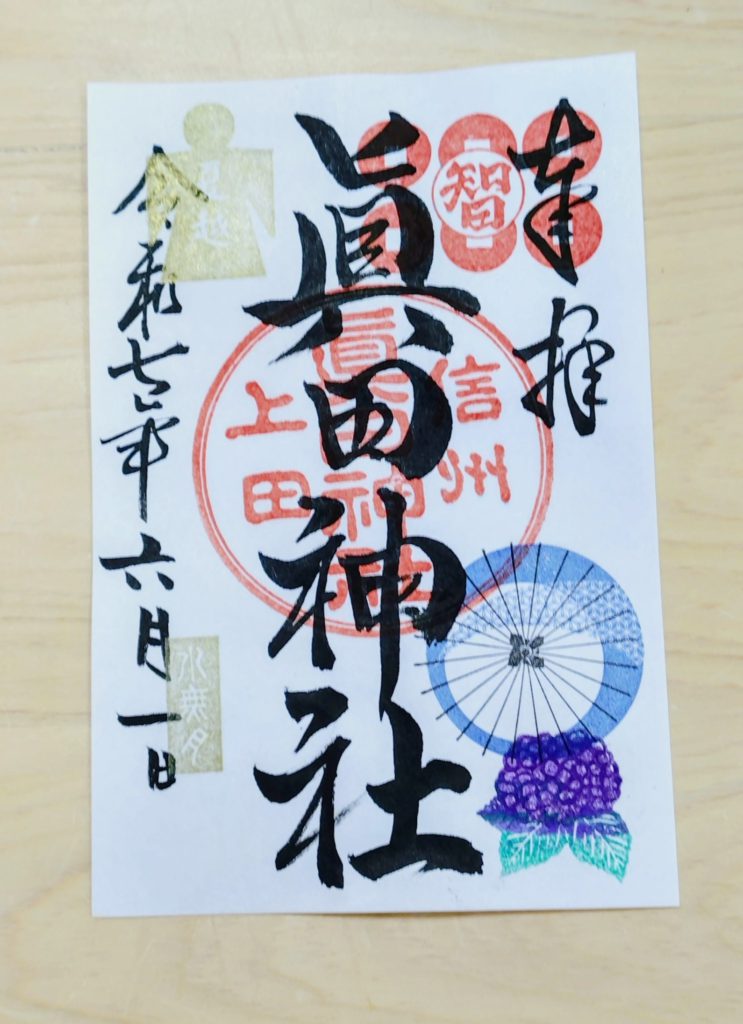 奉拝
智
眞田神社
信州
眞田神社
上田
令和七年六月一日
夏越
水無月